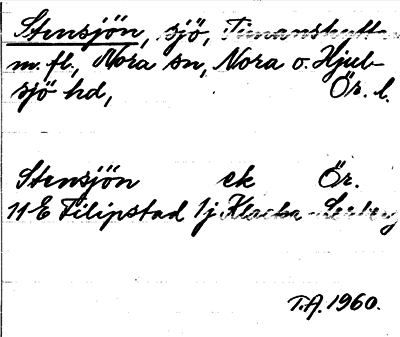 Stensjön, sjö,
m. fl., Nora sn, Nora o. Hjul-
sjö hd, Ör. l.
Stensjön ek Ör.
11 E Filipstad 1j Klacka-Lerberg
T.A. 1960.